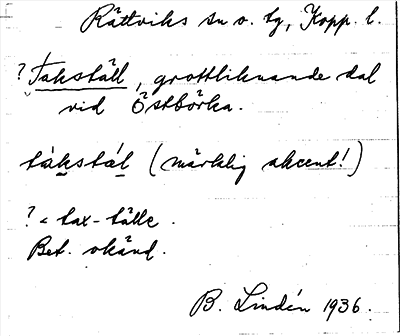 Rättviks sn o. tg, Kopp. l.
? Takställ, grottliknande dal
vid Östbörka.
tákstál (märklig akcent!)
? < tax-tälle.
Bet. okänd.
B. Lindén 1936.